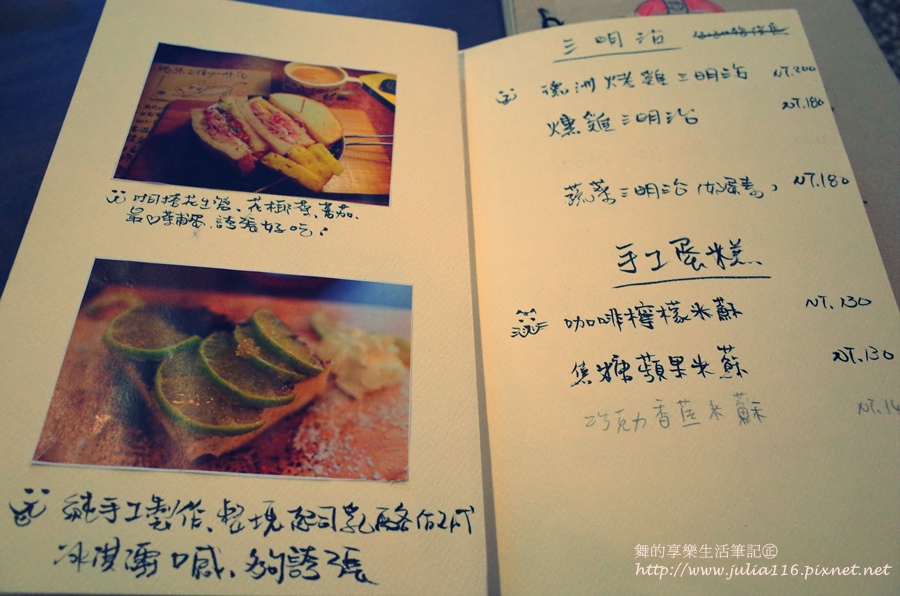 吐司搭花生醬、花椰菜、蕃茄、
最♡菜脯蛋,誇張好吃!
純手工製作、整塊起司乳酪
冰淇淋喊、夠誇張
三明治
德洲燻雞三明治 NT.200
燻雞三明治 NT.180
蔬菜三明治 NT.180
手工蛋糕
咖啡檸檬米蘇 NT.130
焦糖蘋果米蘇 NT.130
巧克力香蕉米蘇 NT.14
舞的享樂生活筆記
http://www.julia116.pixnet.net